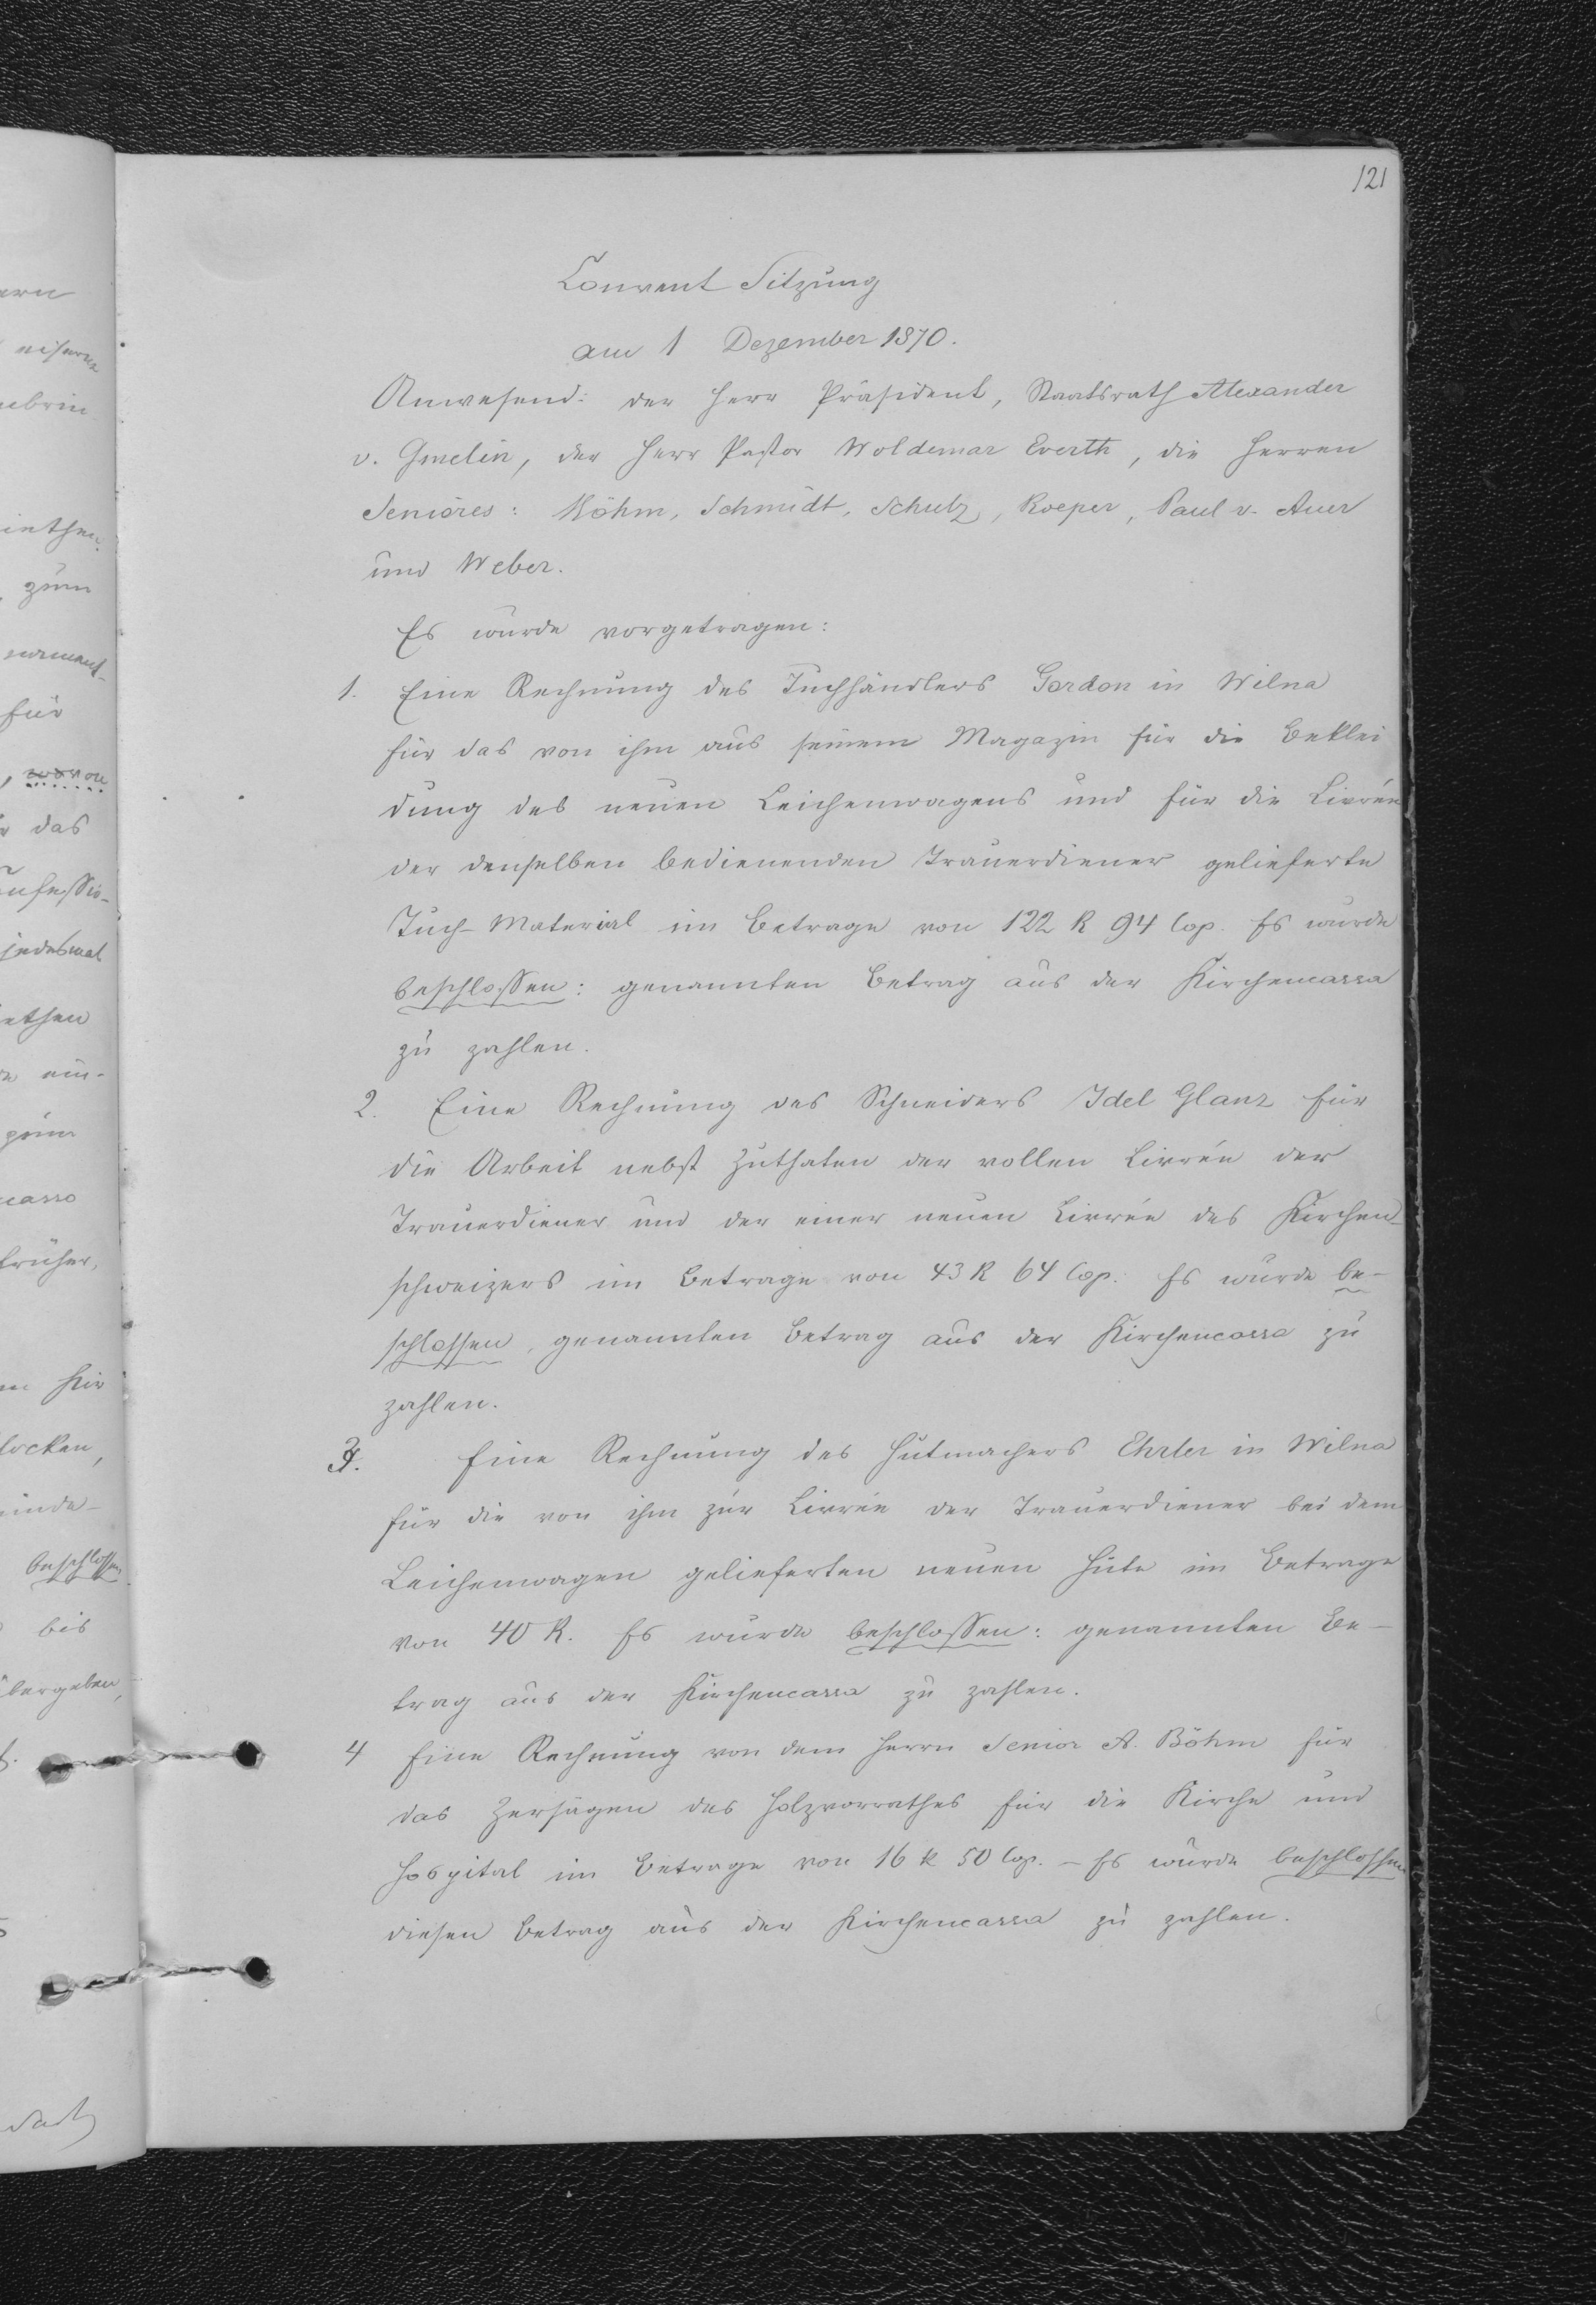 121
Convent Sitzung
am 1 Dezember 1870.
Anwesend: der Herr Präsident, Staatsrath Alexander
v. Gmelin, der Herr Pastor Woldemar Everth, die Herren
Seniores: Böhm, Schmidt, Schulz, Roeper, Paul v. Auer
und Weber.
Es wurde vorgetragen:
1. Eine Rechnung des Tuchhändlers Gordon in Wilna
für das von ihm aus seinem Magazin für die Beklei
dung des neuen Leichenwagens und für die Livrée
der denselben bedienenden Trauerdiener gelieferte
Tuch-Material im Betrage von 122 R 94 Cop. Es wurde
beschlossen: genannten Betrag aus der Kirchencassa
zu zahlen.
2. Eine Rechnung des Schneiders Idel Glanz für
die Arbeit nebst Zuthaten der vollen Livrée der
Trauerdiener und der einer neuen Livrée des Kirchen-
schweizers im Betrage von 43 R 64 Cop. Es wurde be-
schlossen, genannten Betrag aus der Kirchencassa zu
zahlen.
3. Eine Rechnung des Hutmachers Ehrler in Wilna
für die von ihm zur Livrée der Trauerdiener bei dem
Leichenwagen gelieferten neuen Hüte im Betrage
von 40 R. Es wurde beschlossen: genannten Be-
trag aus der Kirchencassa zu zahlen.
4 Eine Rechnung von dem Herrn Senior A. Böhm für
das Zersägen des Holzvorrathes für die Kirche und
Hospital im Betrage von 16 R 50 Cop. - Es wurde beschlossen
diesen Betrag aus der Kirchencassa zu zahlen.